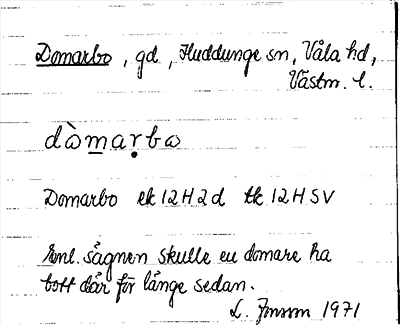 Domarbo, gd, Huddunge sn, Våla hd,
Västm. l.
dòmarbω
Domarbo ek 12H2d tk 12HSV
Enl. sägnen skulle en domare ha
bott där för länge sedan.
L. Jonsson 1971